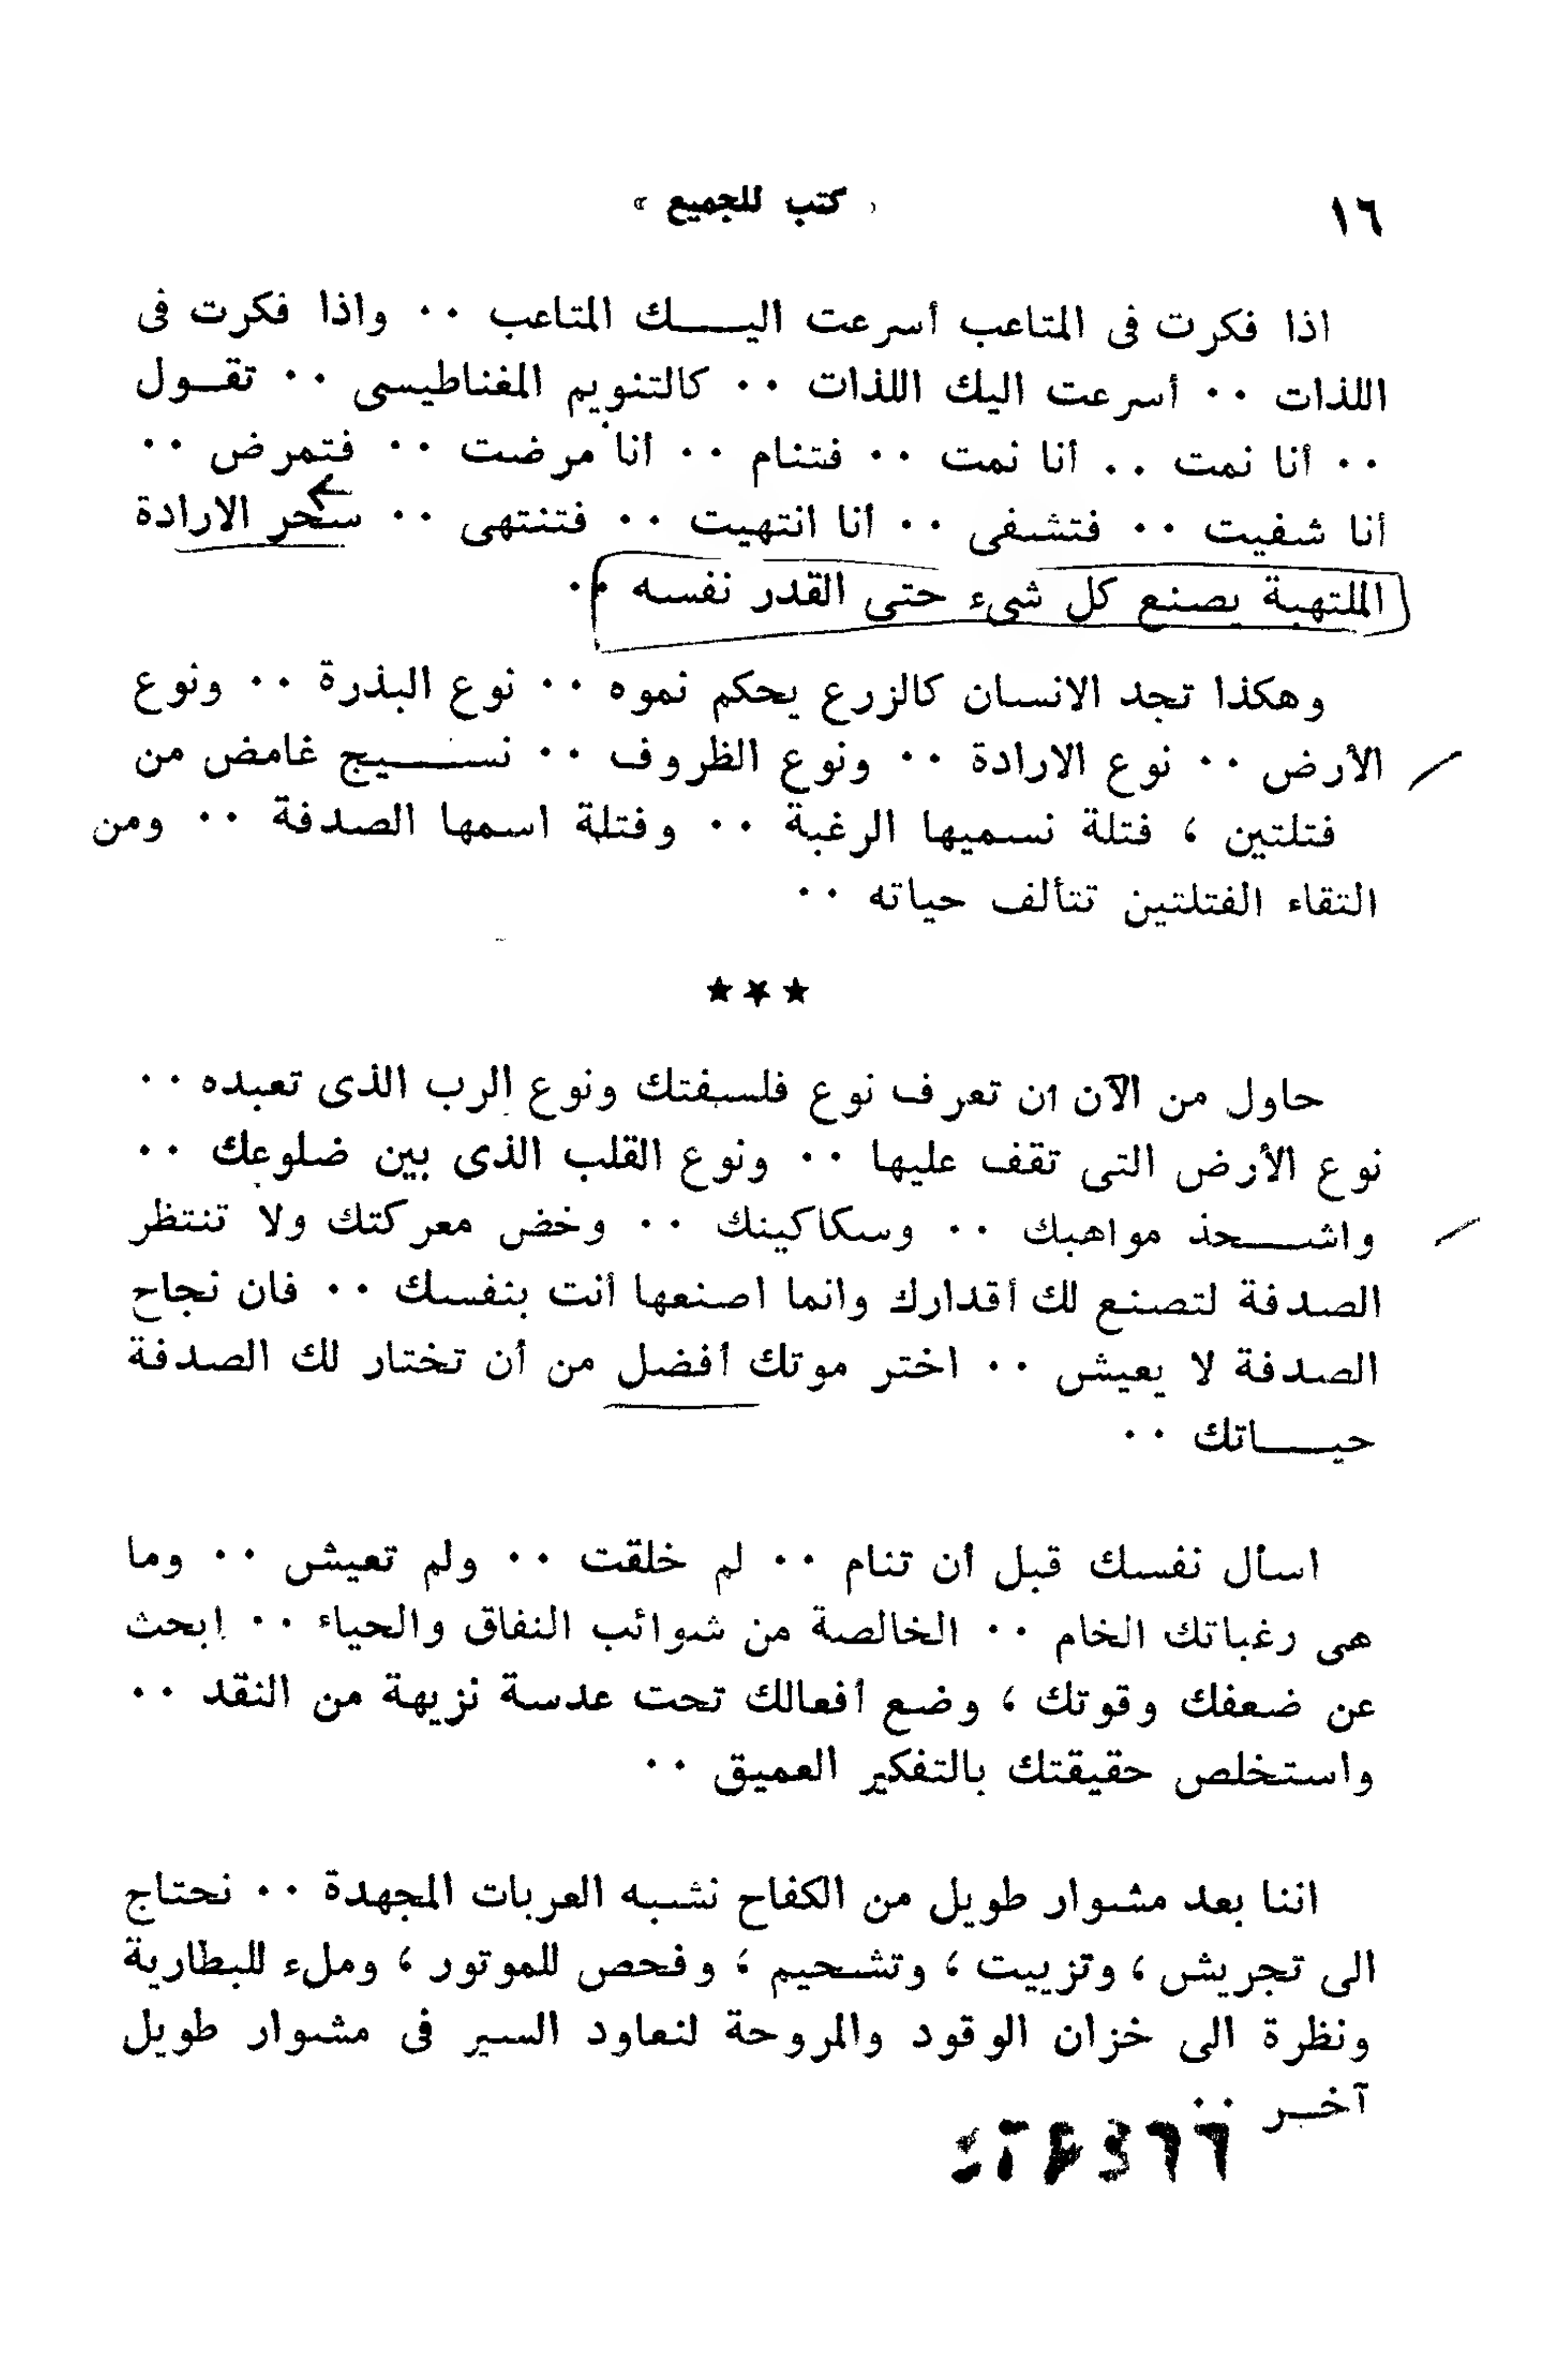 ١٦
« كتب للجميع »
اذا فكرت فى المتاعب أسرعت اليـــك المتاعب ٠٠ واذا فكرت فى
اللذات ٠٠ أسرعت اليك اللذات ٠٠ كالتنويم المغناطيسى ٠٠ تقـول
٠٠ أنا نمت ٠٠ أنا نمت ٠٠ فتنام ٠٠ أنا مرضت ٠٠ فتمرض ٠٠
أنا شفيت ٠٠ فتشفى ٠٠ أنا انتهيت ٠٠ فتنتهى ٠٠ سحر الارادة
الملتهبة يصنع كل شىء حتى القدر نفسه ٠٠
وهكذا تجد الانسان كالزرع يحكم نموه ٠٠ نوع البذرة ٠٠ ونوع
الأرض ٠٠ نوع الارادة ٠٠ ونوع الظروف ٠٠ نســـيج غامض من
فتلتين ، فتلة نسميها الرغبة ٠٠ وفتلة اسمها الصدفة ٠٠ ومن
التقاء الفتلتين تتألف حياته ٠٠
★★★
حاول من الآن ان تعرف نوع فلسفتك ونوع الرب الذى تعبده ٠٠
نوع الأرض التى تقف عليها ٠٠ ونوع القلب الذى بين ضلوعك ٠٠
واشـــحذ مواهبك ٠٠ وسكاكينك ٠٠ وخض معركتك ولا تنتظر
الصدفة لتصنع لك أقدارك وانما اصنعها أنت بنفسك ٠٠ فان نجاح
الصدفة لا يعيش ٠٠ اختر موتك أفضل من أن تختار لك الصدفة
حيـــاتك ٠٠
اسأل نفسك قبل أن تنام ٠٠ لم خلقت ٠٠ ولم تعيش ٠٠ وما
هى رغباتك الخام ٠٠ الخالصة من شوائب النفاق والحياء ٠٠ ابحث
عن ضعفك وقوتك ، وضع أفعالك تحت عدسة نزيهة من النقد ٠٠
واستخلص حقيقتك بالتفكير العميق ٠٠
اننا بعد مشوار طويل من الكفاح نشبه العربات المجهدة ٠٠ نحتاج
الى تجريش ، وتزييت ، وتشحيم ، وفحص للموتور ، وملء للبطارية
ونظرة الى خزان الوقود والمروحة لنعاود السير فى مشوار طويل
آخـر ٠٠